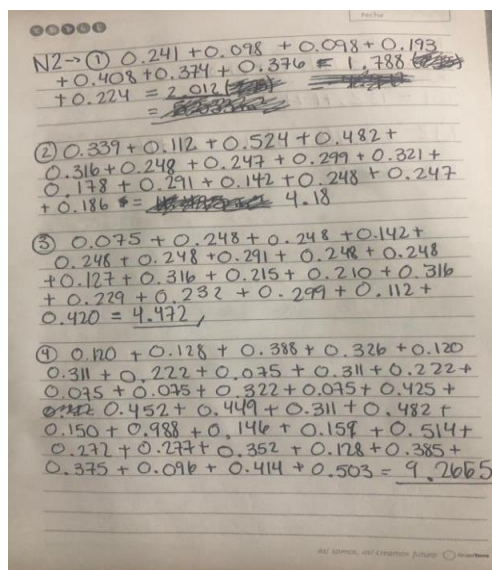 Fecha
N2→ ① 0.241 + 0.098 + 0.098 + 0.193
+ 0.408 + 0.374 + 0.376 = 1.788
+ 0.224 = 2.012
=
② 0.339 + 0.112 + 0.524 + 0.482 +
0.316 + 0.248 + 0.247 + 0.299 + 0.321 +
0.178 + 0.291 + 0.142 + 0.248 + 0.247
+ 0.186 = 4.18
③ 0.075 + 0.248 + 0.248 + 0.142 +
0.248 + 0.248 + 0.291 + 0.248 + 0.248
+ 0.127 + 0.316 + 0.215 + 0.210 + 0.316
+ 0.229 + 0.232 + 0.299 + 0.112 +
0.420 = 4.472
④ 0.120 + 0.128 + 0.388 + 0.326 + 0.120
0.311 + 0.222 + 0.075 + 0.311 + 0.222 +
0.075 + 0.075 + 0.322 + 0.075 + 0.425 +
0.452 + 0.449 + 0.311 + 0.482 +
0.150 + 0.988 + 0.146 + 0.159 + 0.514 +
0.272 + 0.277 + 0.352 + 0.128 + 0.385 +
0.375 + 0.096 + 0.414 + 0.503 = 9.2665
así somos, así creamos futuro